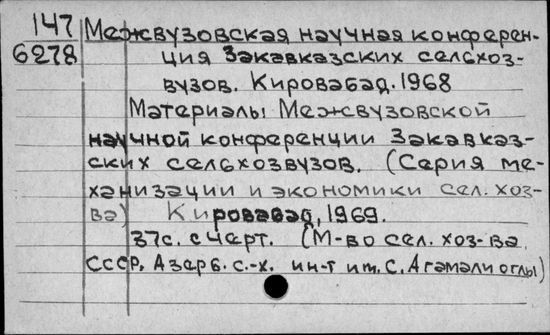 147 Межвузовская научная конферен-
6278 ция Закавказских сельхоз-
вузов. Кировабад. 1968
Материалы Межвузовской
научной конференции Закавказ-
ских сельхозвузов. (Серия ме-
ханизации и экономики сел. хоз-
ва) Кировабад, 1969.
37с. с черт. (М-во сел. хоз-ва
СССР, Азерб. с.-х. ин-т им. С. Агамали оглы)